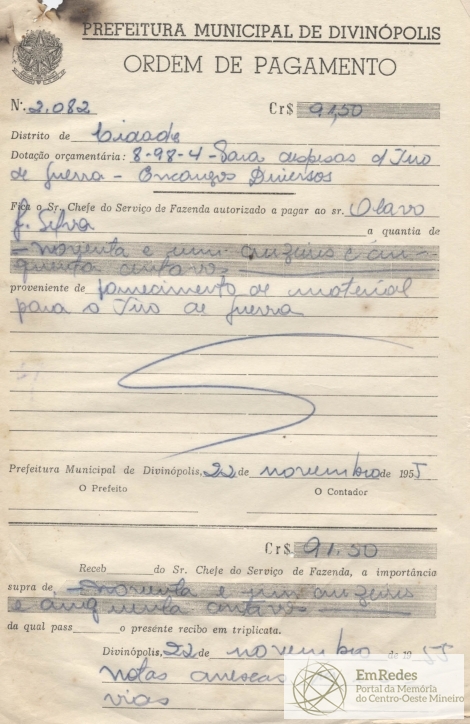 PREFEITURA MUNICIPAL DE DIVINÓPOLIS
ORDEM DE PAGAMENTO
N.º 2.082 Cr$ 91,50
Distrito de Cidade
Dotação orçamentária: 8-98-4-Para despesas d/ Tiro
de Guerra - Encargos Diversos
Fica o Sr. Chefe do Serviço de Fazenda autorizado a pagar ao sr. Olavo
J. Silva a quantia de
-noventa e um cruzeiros e cin-
quenta centavos
proveniente de fornecimento de material
para o Tiro de Guerra
Prefeitura Municipal de Divinópolis, 22 de novembro de 1955
O Prefeito O Contador
Cr$ 91.50
Receb do Sr. Chefe do Serviço de Fazenda, a importância
supra de -noventa e um cruzeiros
e cinquenta centavos
da qual pass o presente recibo em triplicata.
Divinópolis, 22 de novembro de 1955
notas anexas
vias
EmRedes
Portal da Memória
do Centro-Oeste Mineiro